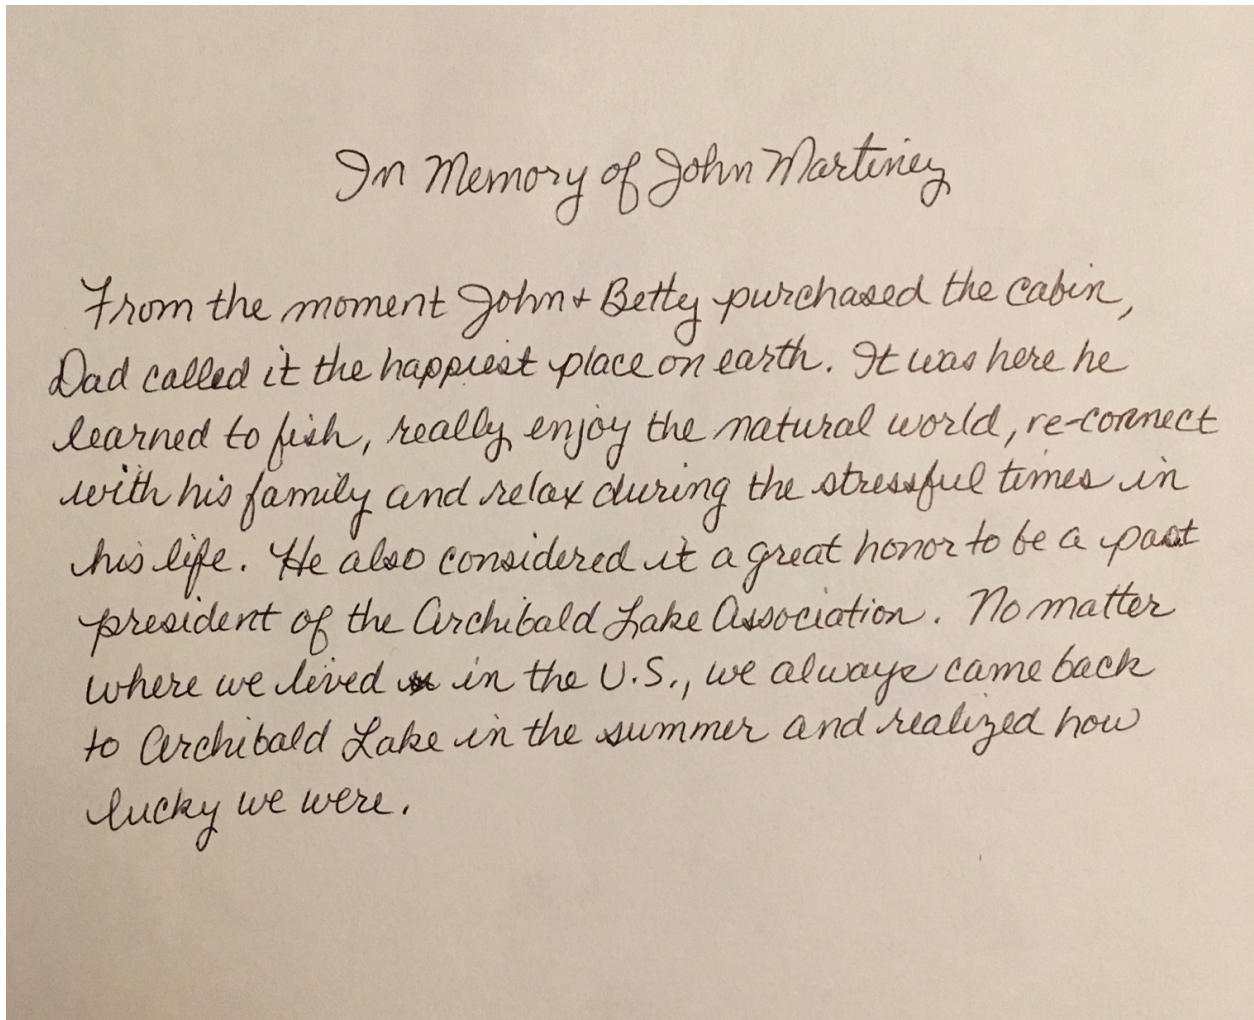 In Memory of John Martinez
From the moment John + Betty purchased the cabin,
Dad called it the happiest place on earth. It was here he
learned to fish, really enjoy the natural world, re-connect
with his family and relax during the stressful times in
his life. He also considered it a great honor to be a past
president of the Archibald Lake Association. No matter
where we lived in the U.S., we always came back
to Archibald Lake in the summer and realized how
lucky we were.